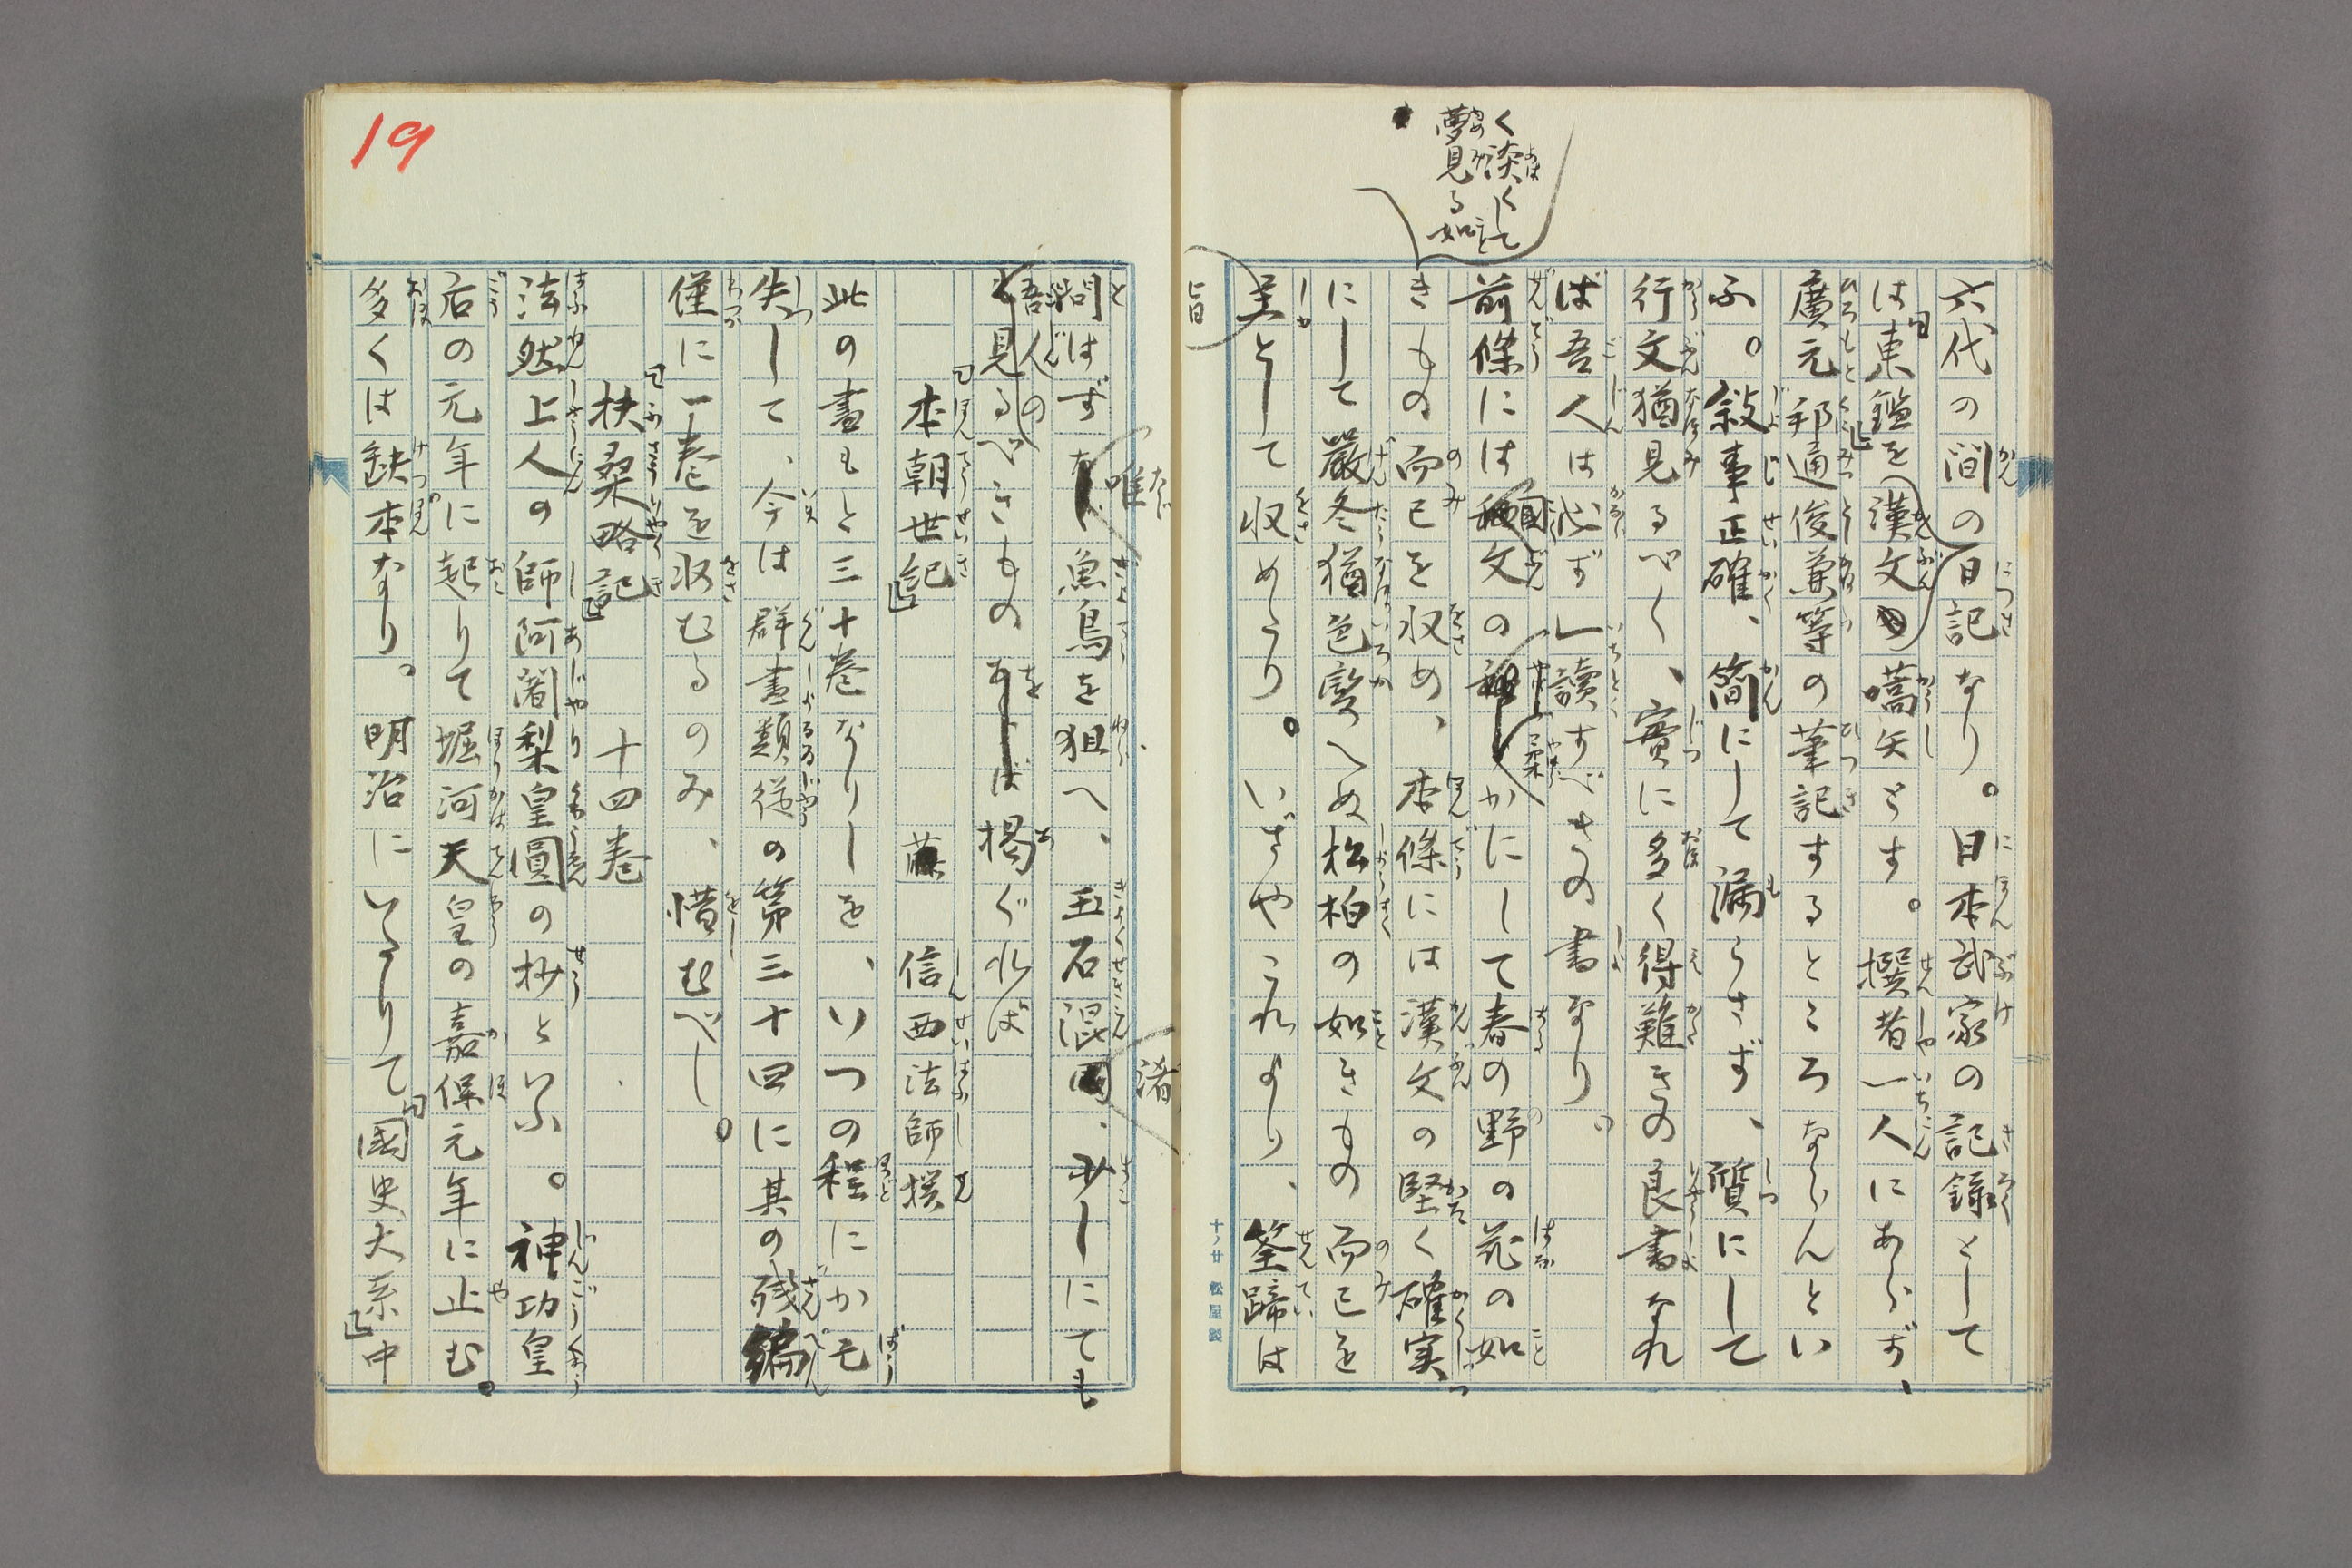 く淡くして
夢見る如
六代の間の日記なり。日本武家の記録として
は『東鑑』を漢文の嚆矢とす。撰者一人にあらず、
廣元邦通俊兼等の筆記するところならんとい
ふ。敍事正確、簡にして漏らさず、質にして
行文猶見るべく、實に多く得難きの良書なれ
ば吾人は必ず一讀すべきの書なり。
前條には文の柔かにして春の野の花の如
きもの而已を収め、本條には漢文の堅く確実
にして嚴冬猶色變へぬ松柏の如きもの而已を
旨として収めたり。いざやこれより、筌蹄は
十ノ廿 松屋製
19
問はず唯魚鳥を狙へ、玉石混淆、少しにても
吾人の見るべきものをば掲ぐれば
『本朝世記』 藤 信西法師撰
此の書もと三十巻なりしを、いつの程にか亡
失して、今は群書類従の第三十四に其の残編
僅に一巻を収むるのみ、惜むべし。
『扶桑略記』 十四巻
法然上人の師阿闍梨皇圓の抄といふ。神功皇
后の元年に起りて堀河天皇の嘉保元年に止む。
多くは缺本なり。明治にいたりて『國史大系』中